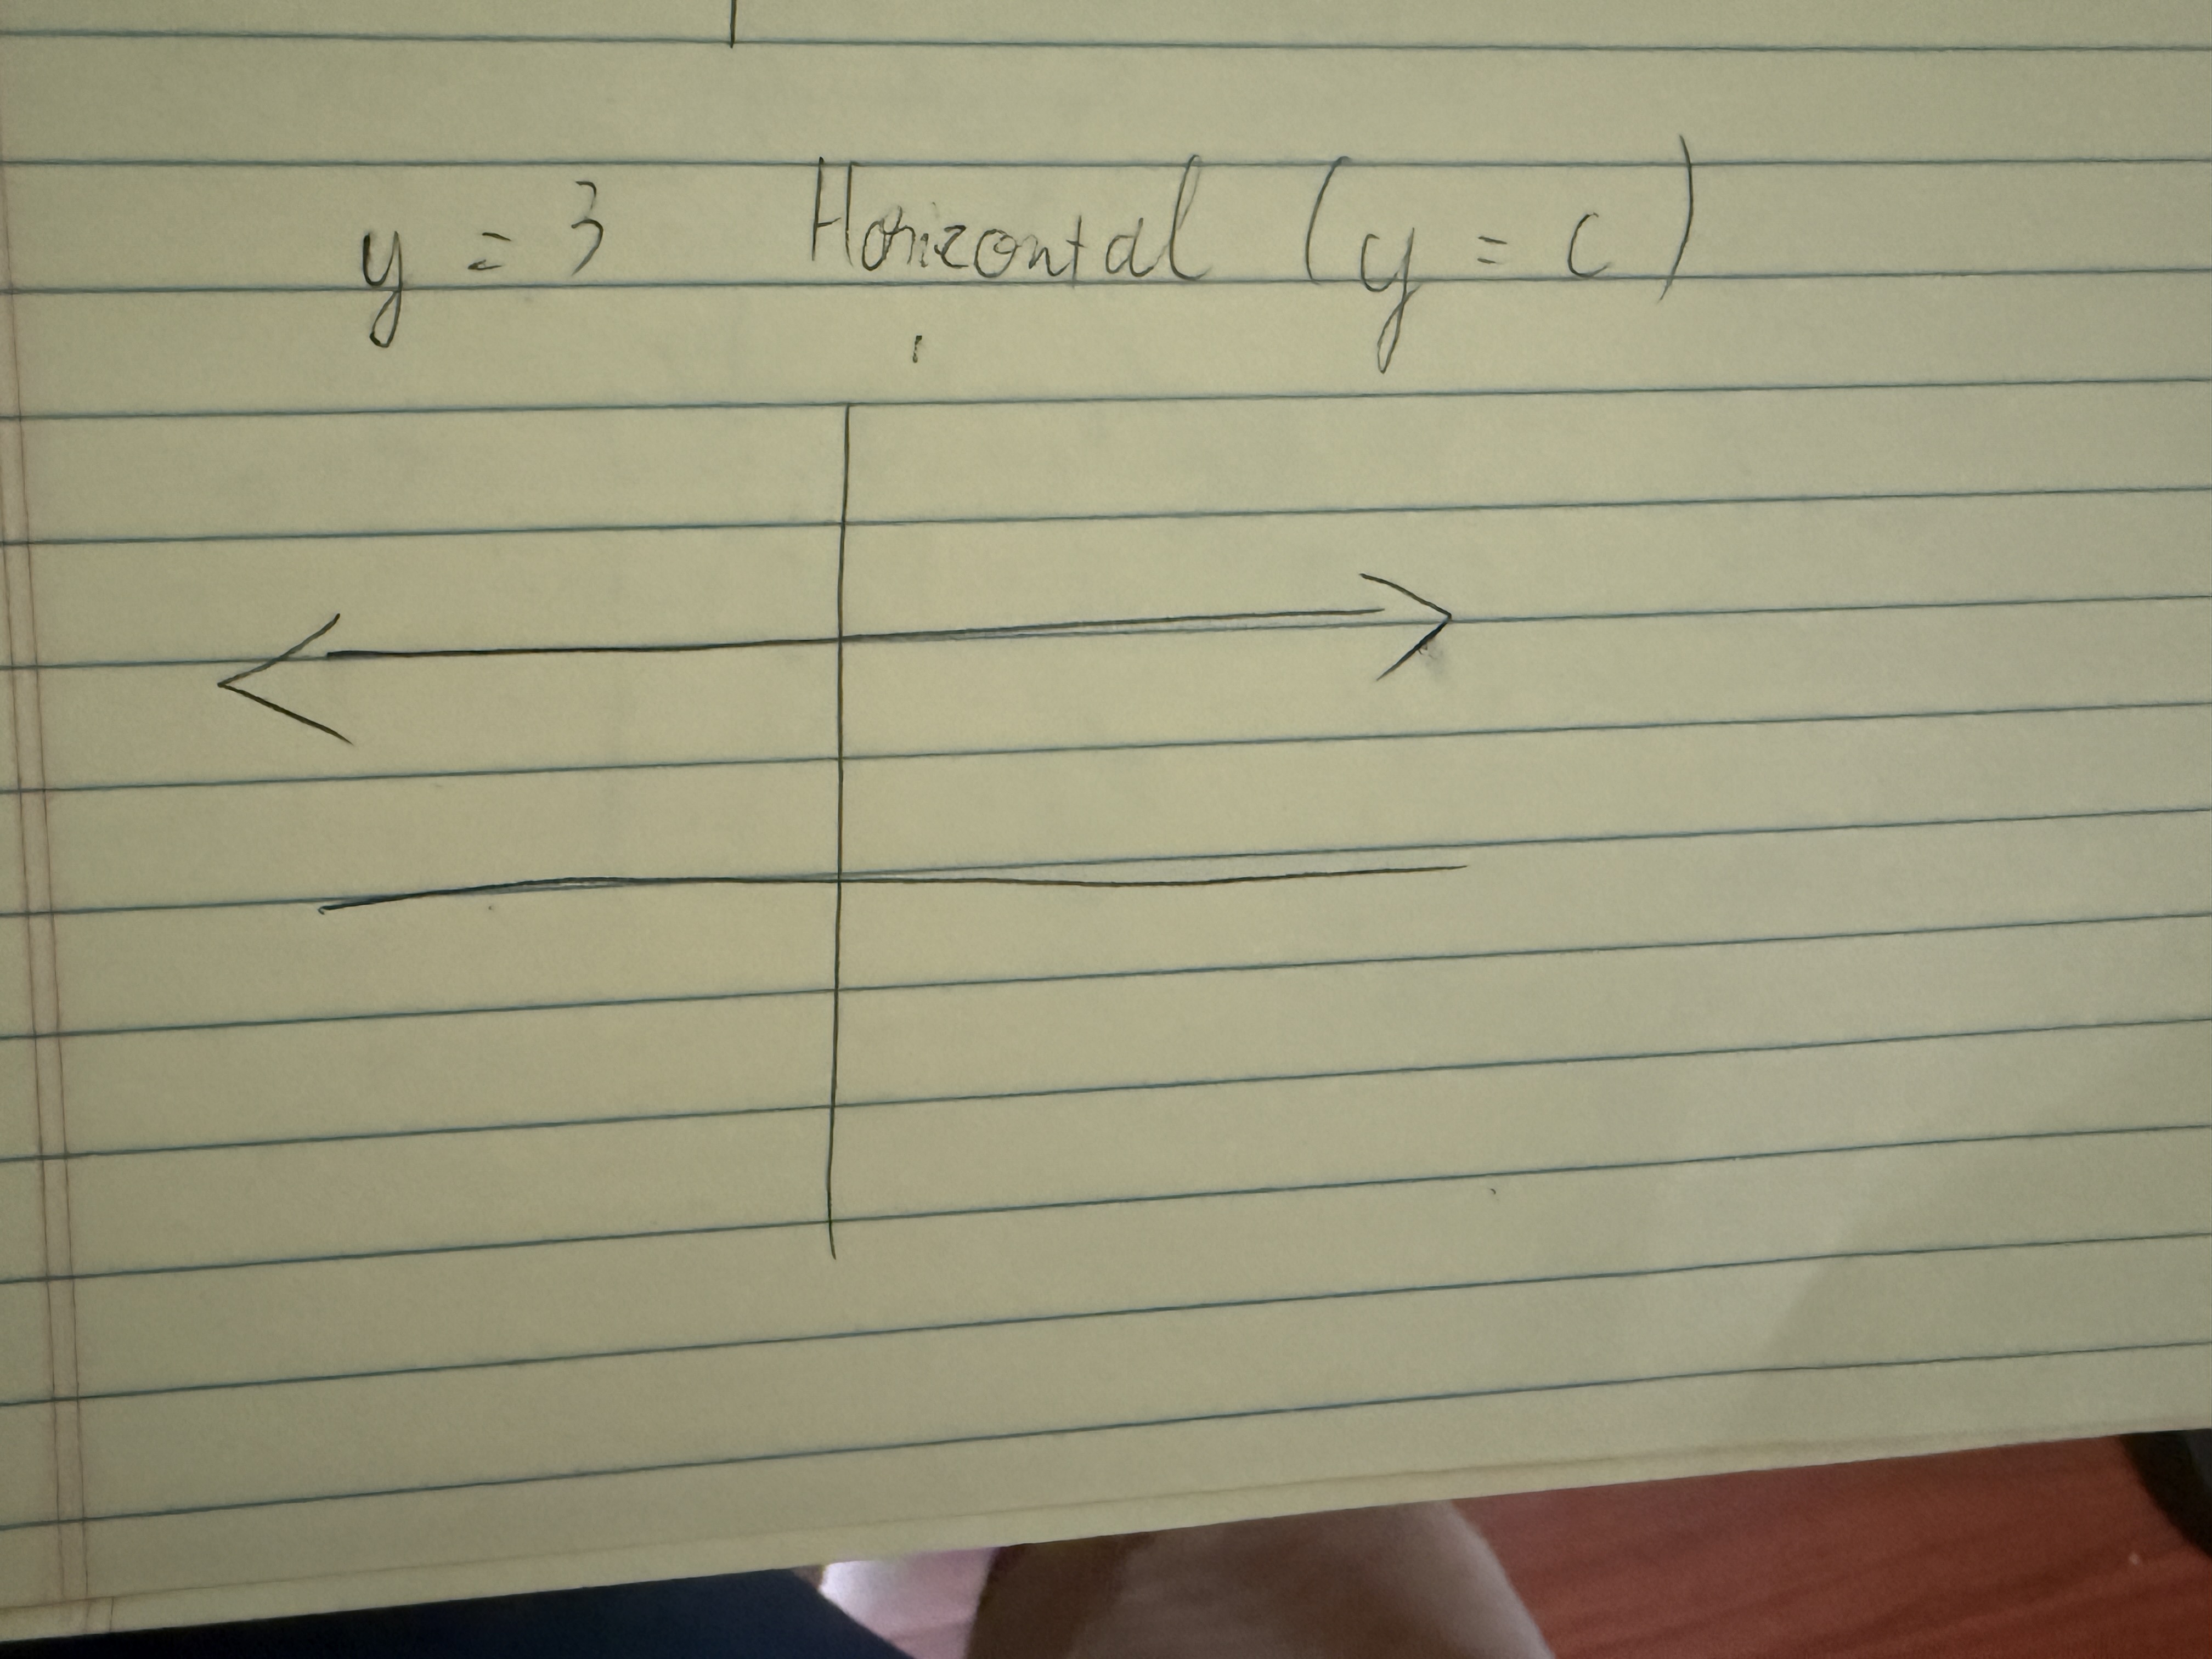 y = 3 Horizontal (y = c)